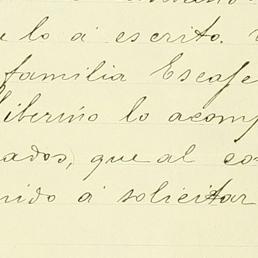 e lo á escrito.
familia Escafe
liberiño lo acomp
ados, que al co
nido á solicitar